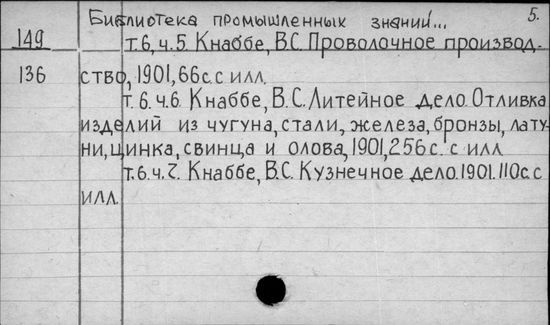 5.
Библиотека промышленных знаний...
149 Т.6, ч.5. Кнаббе, В.С. Проволочное производ-
136 ство, 1901, 66с. с илл.
Т.6.ч.6. Кнаббе, В.С. Литейное дело. Отливка
изделий из чугуна, стали, железа, бронзы, лату-
ни, цинка, свинца и олова, 1901, 256с. с илл
Т.6.ч.7. Кнаббе, В.С. Кузнечное дело. 1901. 110с. с
илл.